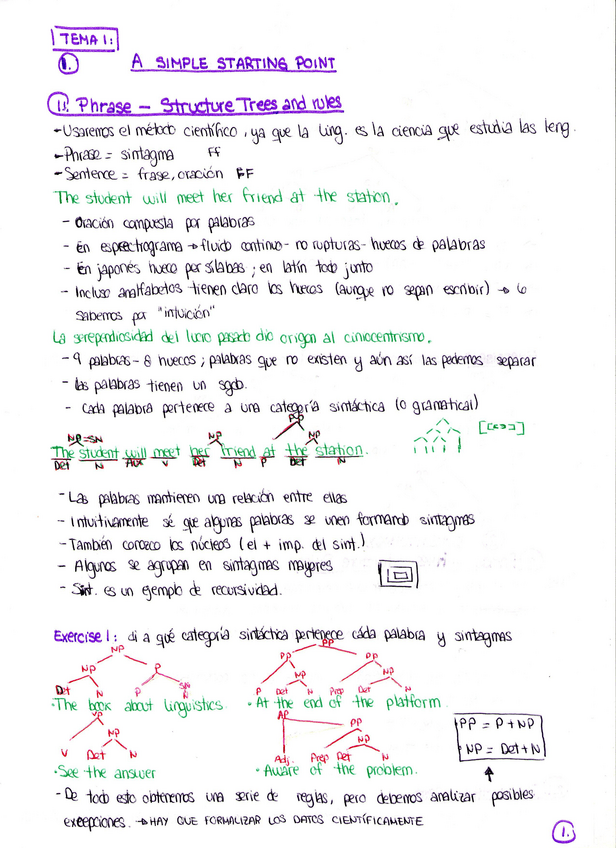 TEMA 1:
1. A SIMPLE STARTING POINT
1.1. Phrase - Structure Trees and rules
- Usaremos el método científico, ya que la Ling. es la ciencia que estudia las leng.
- Phrase = sintagma FF
- Sentence = frase, oración FF
The student will meet her friend at the station.
- Oración compuesta por palabras
- En espectrograma → fluido continuo - no rupturas - huecos de palabras
- En japonés hueco por sílabas; en latín todo junto
- Incluso analfabetos tienen claro los huecos (aunque no sepan escribir) → lo
sabemos por "intuición"
La serependiosidad del lucro pasado dio origen al ciniocentrismo.
- 9 palabras - 8 huecos; palabras que no existen y aún así las podemos separar
- Las palabras tienen un sgdo.
- Cada palabra pertenece a una categoría sintáctica (o gramatical)
PP
NP=SN NP NP
[[[]]]
The student will meet her friend at the station.
Det N Aux V Det N P Det N
- Las palabras mantienen una relación entre ellas
- Intuitivamente sé que algunas palabras se unen formando sintagmas
- También conozco los núcleos (el + imp. del sint.)
- Algunos se agrupan en sintagmas mayores
- Sint. es un ejemplo de recursividad.
Exercise 1: di a qué categoría sintáctica pertenece cada palabra y sintagmas
NP PP
NP P PP PP
NP NP
Det N P SN P Det N Prep Det N
· The book about linguistics. · At the end of the platform.
VP AP
PP
NP NP
V Det N Adj. Prep Det N
· See the answer · Aware of the problem.
PP = P + NP
· NP = Det + N
- De todo esto obtenemos una serie de reglas, pero debemos analizar posibles
excepciones. → HAY QUE FORMALIZAR LOS DATOS CIENTÍFICAMENTE
1.